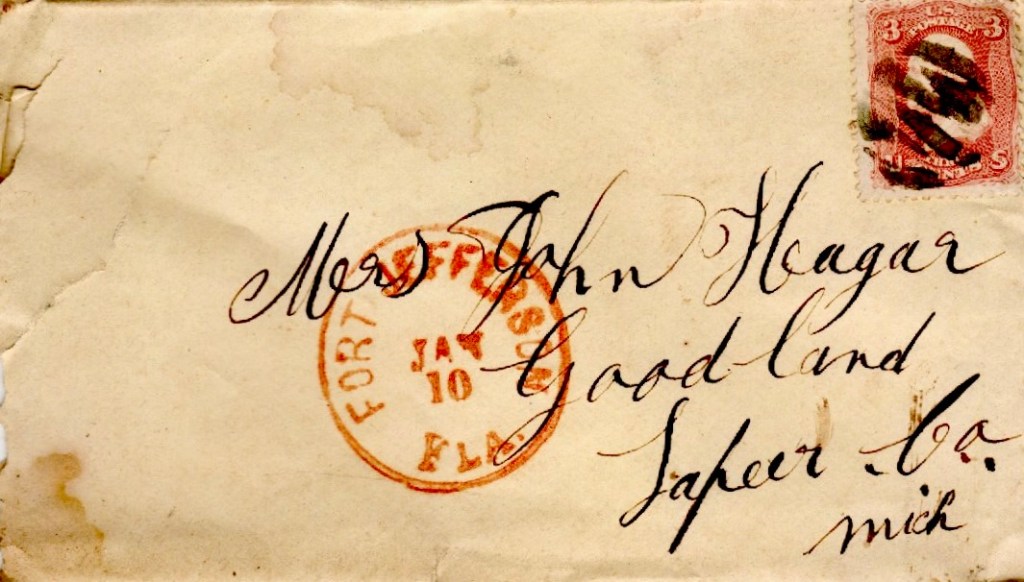 3 U.S. 3
POSTAGE
U S
CENTS
Mrs John Heagar
Good land
Lapeer Co.
Mich
FORT JEFFERSON
JAN
10
FLA.